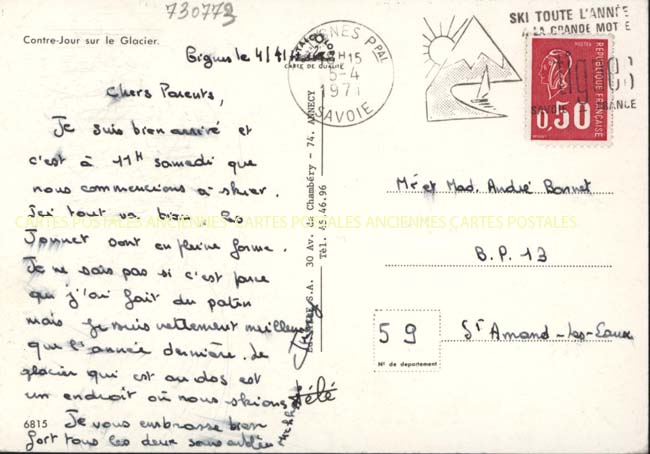 730773
Contre-Jour sur le Glacier.
Tignes le 4/4/
CARTE DE QUALITÉ
Chers Parents,
Je suis bien arrivé et
c'est à 11H samedi que
nous commencions à skier.
Ici tout va bien. Les
Jonnet sont en pleine forme.
Je ne sais pas si c'est parce
que j'ai fait du patin
mais je suis nettement meilleur
que l'année dernière. Le
glacier qui est au dos est
un endroit où nous skions
6815 Je vous embrasse bien
fort tous les deux sans oublier
S.A. 30 Av. de Chambéry - 74. ANNECY
Tél. 45.46.96
TIGNES PPAL
H15
5-4
1971
SAVOIE
SKI TOUTE L'ANNÉE
A LA GRANDE MOTTE
tignes
SAVOIE FRANCE
REPUBLIQUE FRANÇAISE
0,50
Mr et Mad. André Bonnet
B.P. 13
59 St Amand-Les-Eaux
N° de département
CARTES POSTALES ANCIENNES CARTES POSTALES ANCIENNES CARTES POSTALES